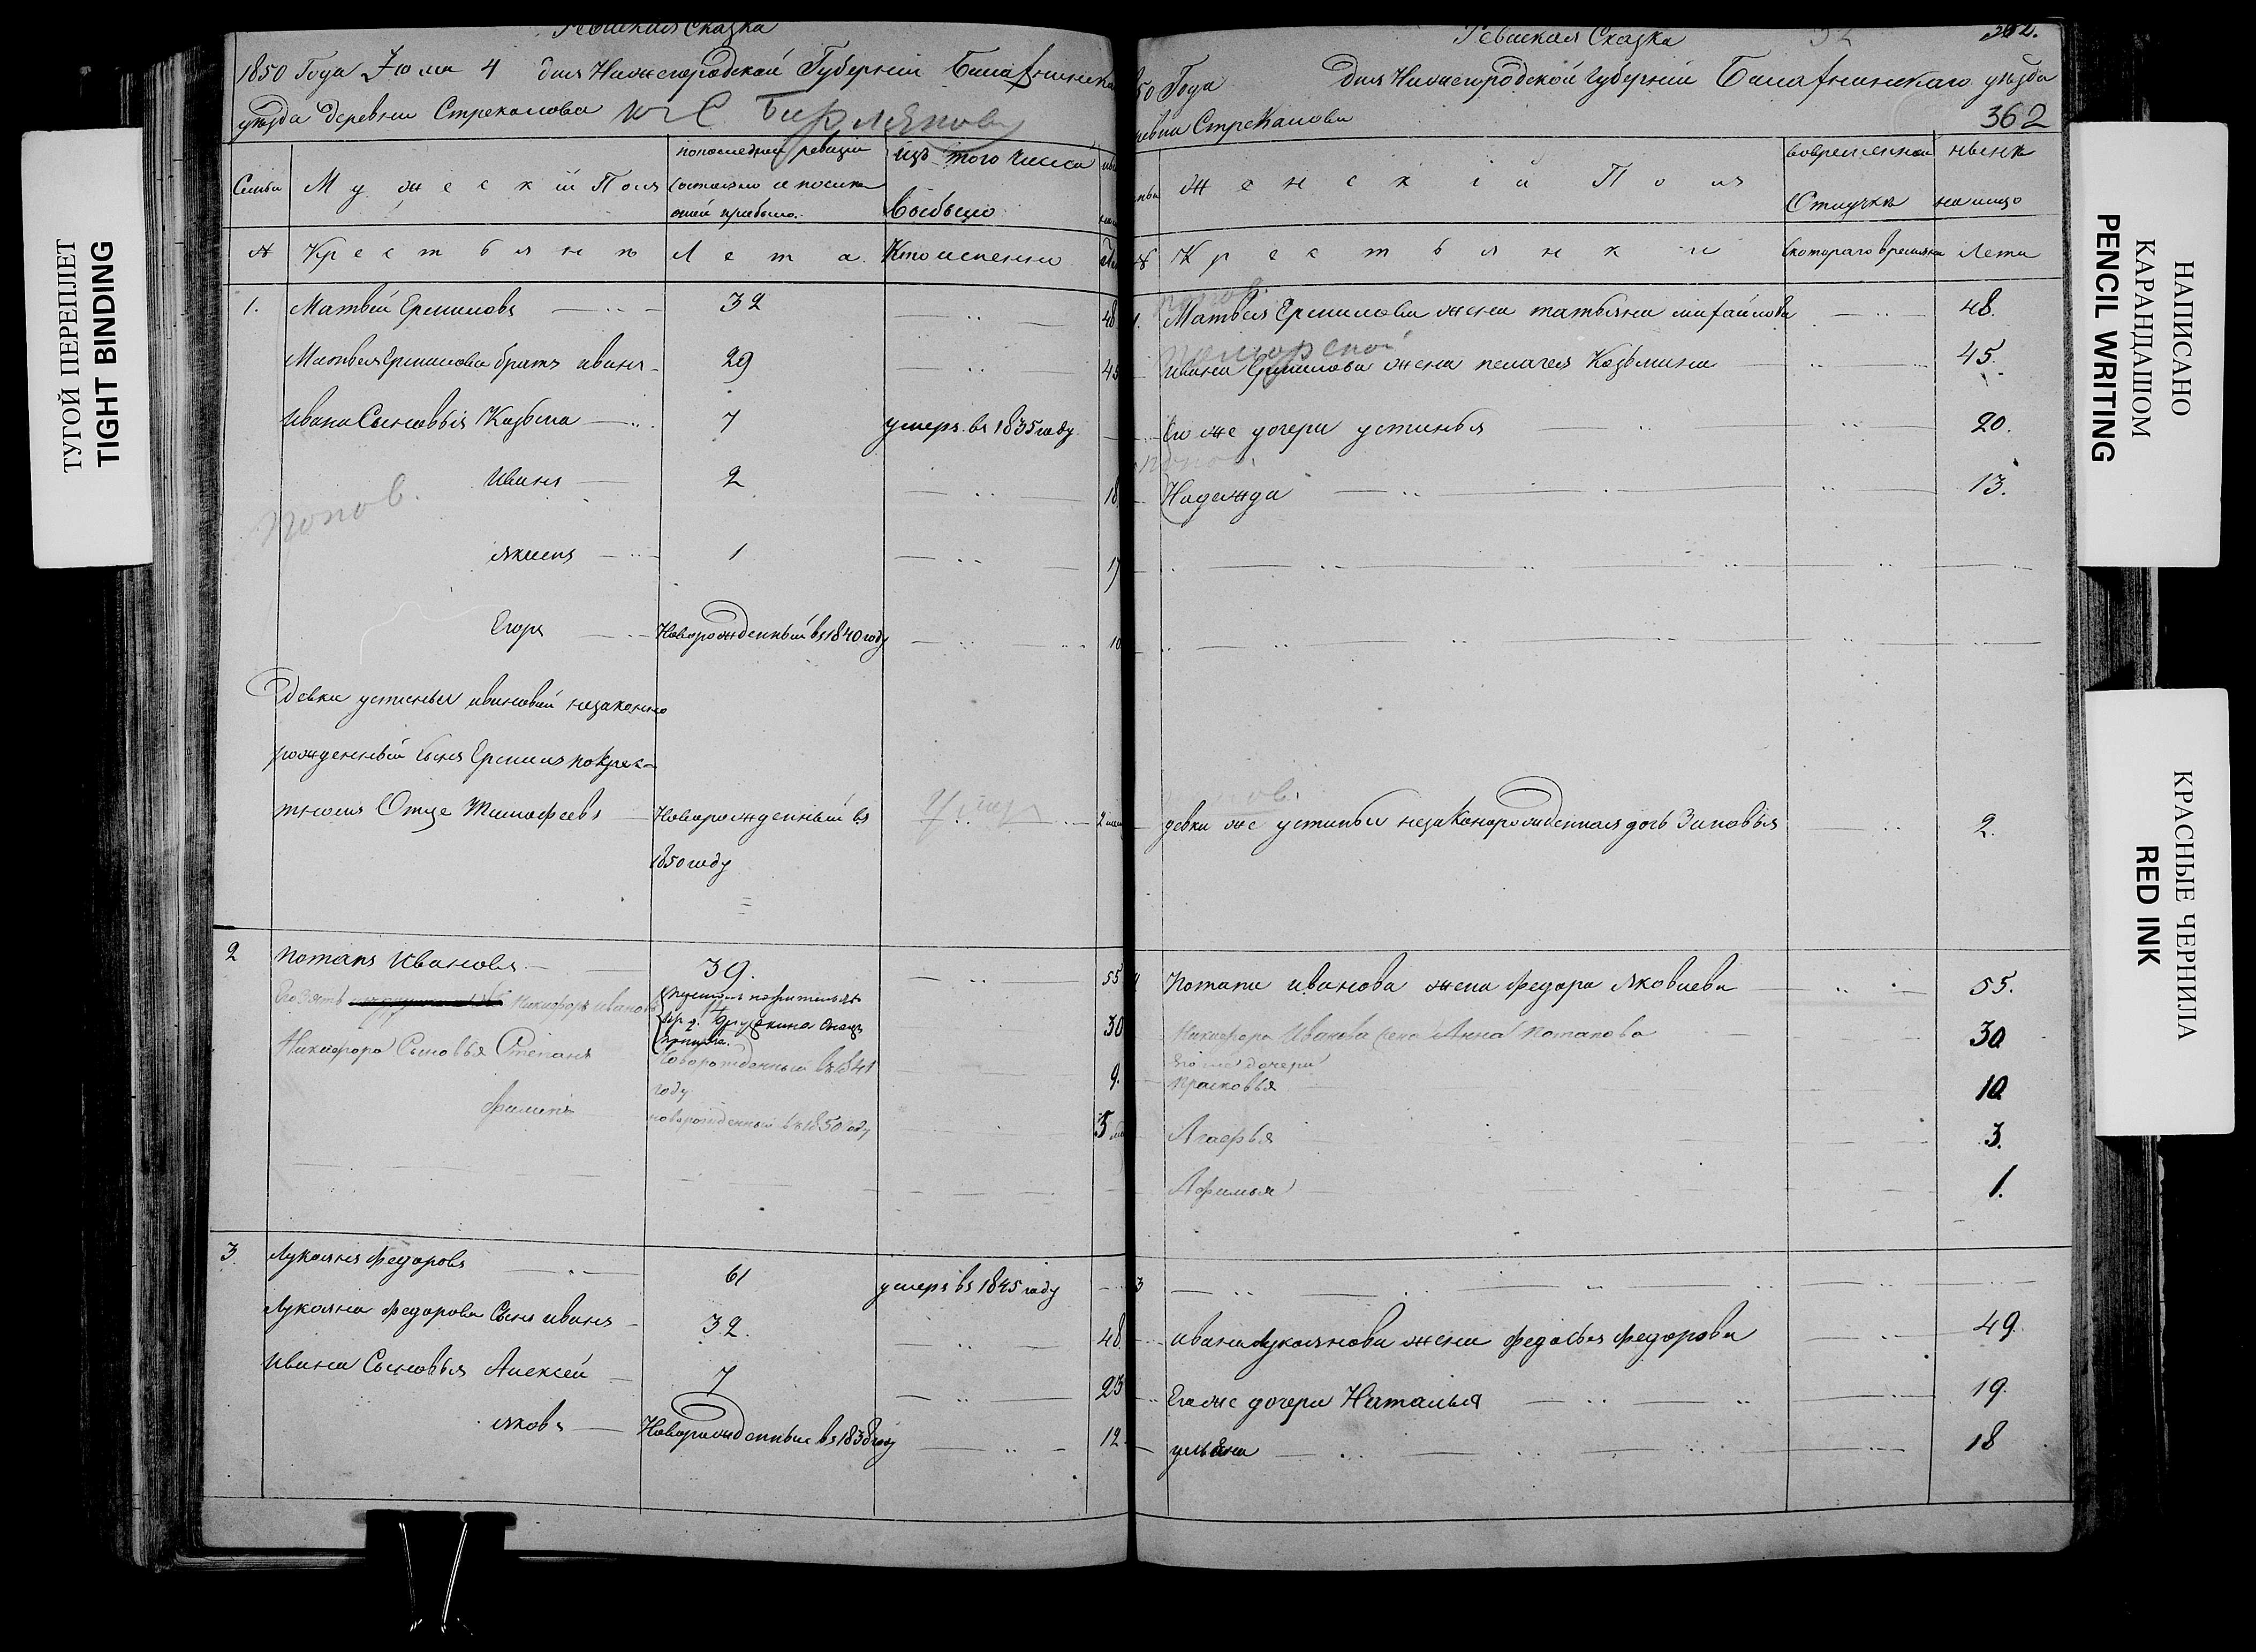 Ревиская Сказка
1850 Года Июля 4 дня Нижегородской Губернии Балахнинска
уезда деревни Стрекалова
Семьи
Мужеский Полъ
по последней ревизии состояло и после оной прибыло.
Изъ того числа выбыло
№
Крестьянъ
Лета
Кто именно
1. Матвей Ермиловъ 32 48
Матвея Ермилова братъ иванъ 29 45
Ивана Сыновья Козьма 7 умеръ въ 1835 году
Иванъ 2 18
Попов.
якимъ 1 17
Егоръ Новорожденный въ 1840 году 10
девки устиньи ивановой незаконно
рожденный сынъ Ермилъ по крес-
тномъ Отце Тимофеевъ Новорожденный въ
1850 году
2 Потапъ Ивановъ 39. 55
Его зять Никифоръ Ивановъ 30
Никифора Сыновья Степанъ Новорожденный въ 1841
году 9.
Филипъ новорожденный въ 1850 году 5
3. Лукоянъ Федоровъ 61 умеръ въ 1845 году
Лукояна Федорова Сынъ иванъ 32. 48.
Ивана Сыновья Алексей 7 23
яковъ Новорожденные въ 1838 году 12
Ревиская Сказка
362.
50 Года дня Нижегородской Губернии Балахнинскаго уезда
Стрекалова
362
Женскій Полъ
во временной Отлучке
ныне на лицо
№
Крестьянки
С котораго времени
Лета
Попов.
1. Матвея Ермилова жена татьяна михайлова 48.
Ивана Ермилова жена пелагея Козьмина 45.
Его же дочери устинья 20.
Попов.
Надежда 13.
девки же устиньи незаконорожденная дочь Зиновья 2.
Потапа иванова жена федора яковлева 55.
Никифора Иванова жена Анна Потапова 30
Его же дочери
Прасковья 10
Агафья 3.
Афимья 1.
3
ивана лукоянова жена федосья федорова 49.
Его же дочери Наталья 19.
ульяна 18
ТУГОЙ ПЕРЕПЛЕТ
TIGHT BINDING
НАПИСАНО
КАРАНДАШОМ
PENCIL WRITING
КРАСНЫЕ ЧЕРНИЛА
RED INK